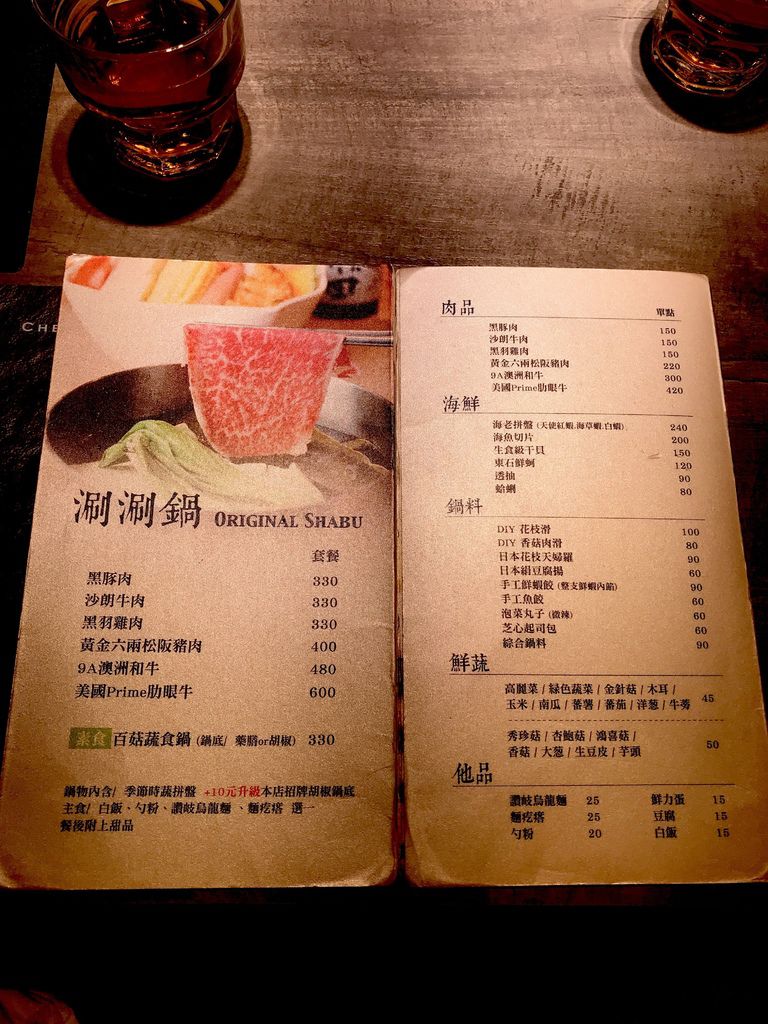 CHE
涮涮鍋 ORIGINAL SHABU
套餐
黑豚肉 330
沙朗牛肉 330
黑羽雞肉 330
黃金六兩松阪豬肉 400
9A澳洲和牛 480
美國Prime肋眼牛 600
素食 百菇蔬食鍋 (鍋底/ 藥膳or胡椒) 330
鍋物內含/ 季節時蔬拼盤 +10元升級本店招牌胡椒鍋底
主食/ 白飯、勺粉、讚岐烏龍麵、麵疙瘩 選一
餐後附上甜品
肉品 單點
黑豚肉 150
沙朗牛肉 150
黑羽雞肉 150
黃金六兩松阪豬肉 220
9A澳洲和牛 300
美國Prime肋眼牛 420
海鮮
海老拼盤 (天使紅蝦.海草蝦.白蝦) 240
海魚切片 200
生食級干貝 150
東石鮮蚵 120
透抽 90
蛤蜊 80
鍋料
DIY 花枝滑 100
DIY 香菇肉滑 80
日本花枝天婦羅 90
日本絹豆腐揚 60
手工鮮蝦餃 (整支鮮蝦內餡) 90
手工魚餃 60
泡菜丸子 (微辣) 60
芝心起司包 60
綜合鍋料 90
鮮蔬
高麗菜 / 綠色蔬菜 / 金針菇 / 木耳 /
玉米 / 南瓜 / 蕃薯 / 蕃茄 / 洋蔥 / 牛蒡 45
秀珍菇 / 杏鮑菇 / 鴻喜菇 /
香菇 / 大蔥 / 生豆皮 / 芋頭 50
他品
讚岐烏龍麵 25 鮮力蛋 15
麵疙瘩 25 豆腐 15
勺粉 20 白飯 15